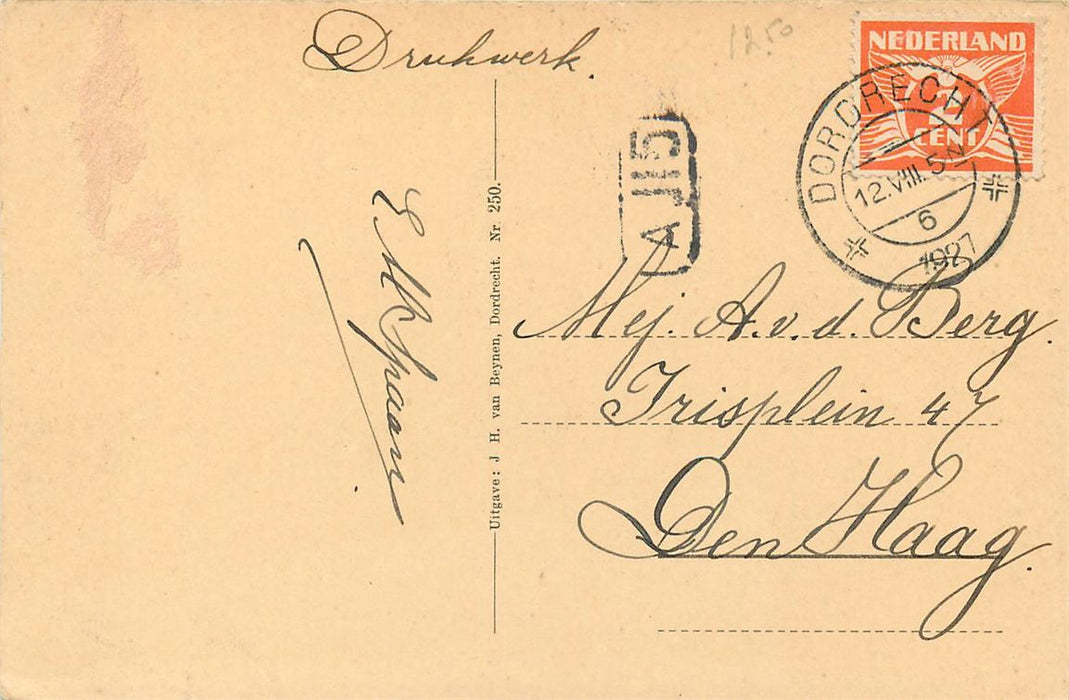 Drukwerk.
12.50
NEDERLAND
2
CENT
DORDRECHT
12.VIII.5 N
6
1927
A J15
Uitgave: J. H. van Beynen, Dordrecht. Nr. 250.
Mej. A. v. d. Berg.
Irisplein 47
Den Haag.